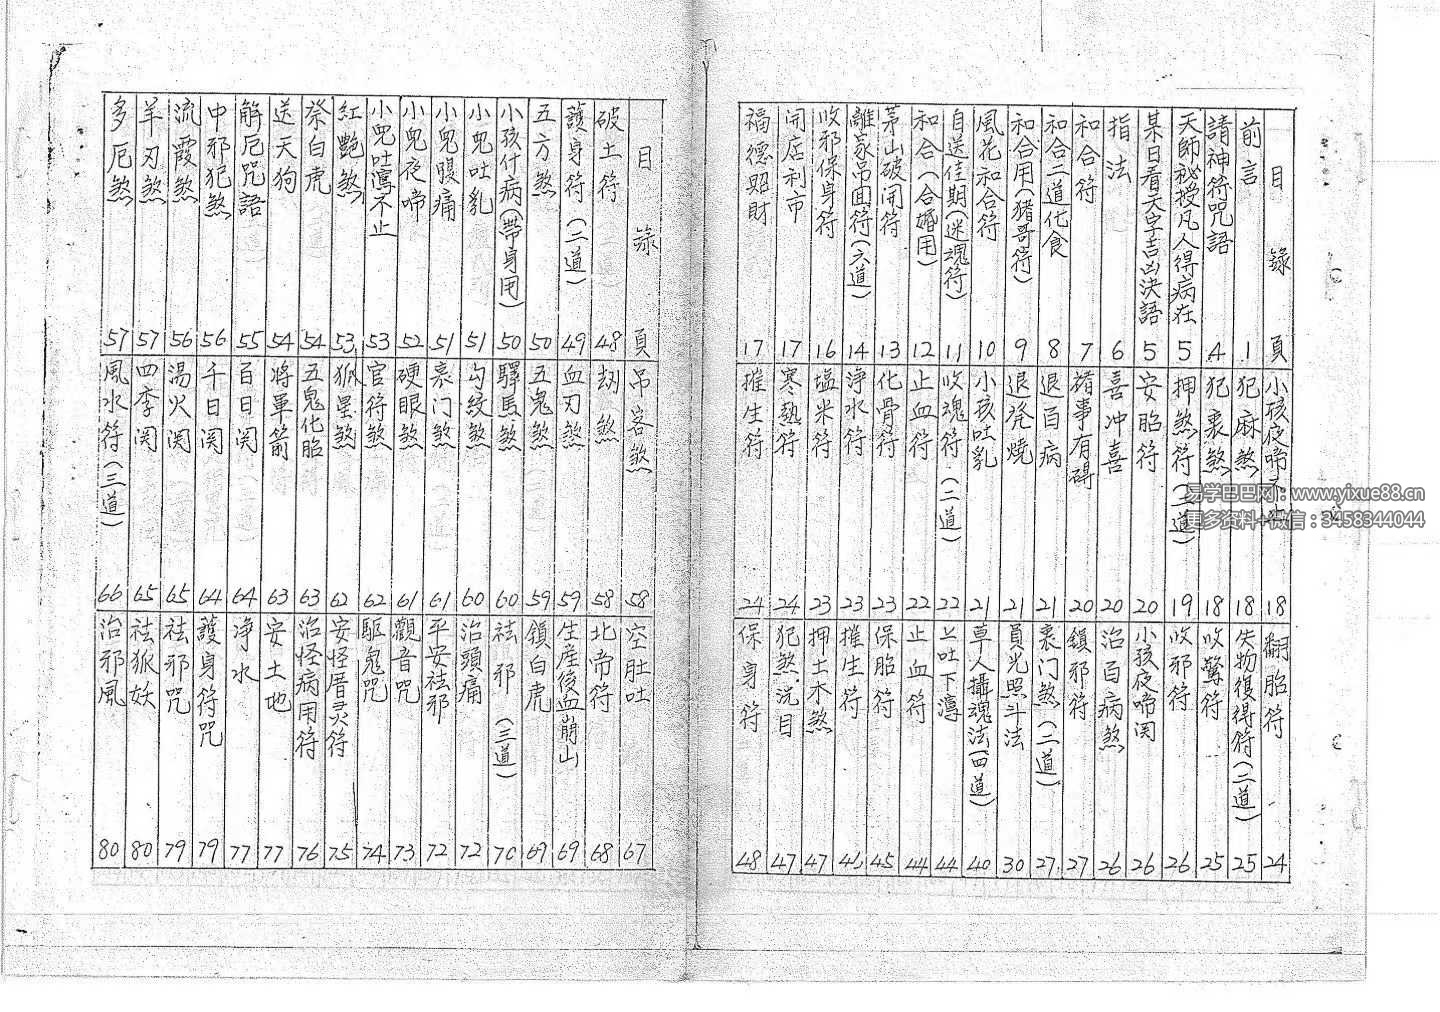 目錄 頁
前言 1
請神符咒語 4
天師祕授凡人得病在 5
某日看天字吉凶決語 5
指法 6
和合符 7
和合二道化食 8
和合用(猪哥符) 9
風花和合符 10
自送佳期(迷魂符) 11
和合(合婚用) 12
茅山破開符 13
離家吊囬符(六道) 14
收邪保身符 16
開店利市 17
福德昭財 17
小孩夜啼不止 18
犯麻煞 18
犯喪煞 18
押煞符(二道) 19
安胎符 20
喜冲喜 20
諸事有碍 20
退百病 21
退発燒 21
小孩吐乳 21
收魂符(二道) 22
止血符 22
化骨符 23
淨水符 23
塩米符 23
寒熱符 24
摧生符 24
翻胎符 24
失物復得符(二道) 25
收驚符 25
收邪符 26
小孩夜啼関 26
治百病煞 26
鎮邪符 27
喪门煞(二道) 27
員光照斗法 30
草人攝魂法(四道) 40
上吐下瀉 44
止血符 44
保胎符 45
摧生符 46
押土木煞 47
犯煞·洗目 47
保身符 48
目錄 頁
破土符 48
護身符(二道) 49
五方煞 50
小孩什病(帶身用) 50
小鬼吐乳 51
小鬼腹痛 51
小鬼夜啼 52
小兒吐瀉不止 53
紅艷煞 53
祭白虎 54
送天狗 54
解厄咒語 55
中邪犯煞 56
流霞煞 56
羊刃煞 57
多厄煞 57
吊客煞 58
刼煞 58
血刃煞 59
五鬼煞 59
驛馬煞 60
勾紋煞 60
喪门煞 61
硬眼煞 61
官符煞 62
狐星煞 62
五鬼化胎 63
將軍箭 63
百日関 64
千日関 64
湯火関 65
四季関 65
風水符(三道) 66
空肚吐 67
北帝符 68
生産後血崩山 69
鎮白虎 69
祛邪(三道) 70
治頭痛 72
平安祛邪 72
觀音咒 73
駆鬼咒 74
安怪厝灵符 75
治怪病用符 76
安土地 77
淨水 77
護身符咒 79
祛邪咒 79
祛狐妖 80
治邪風 80
易学巴巴网:www.yixue88.cn
更多资料+微信:3458344044